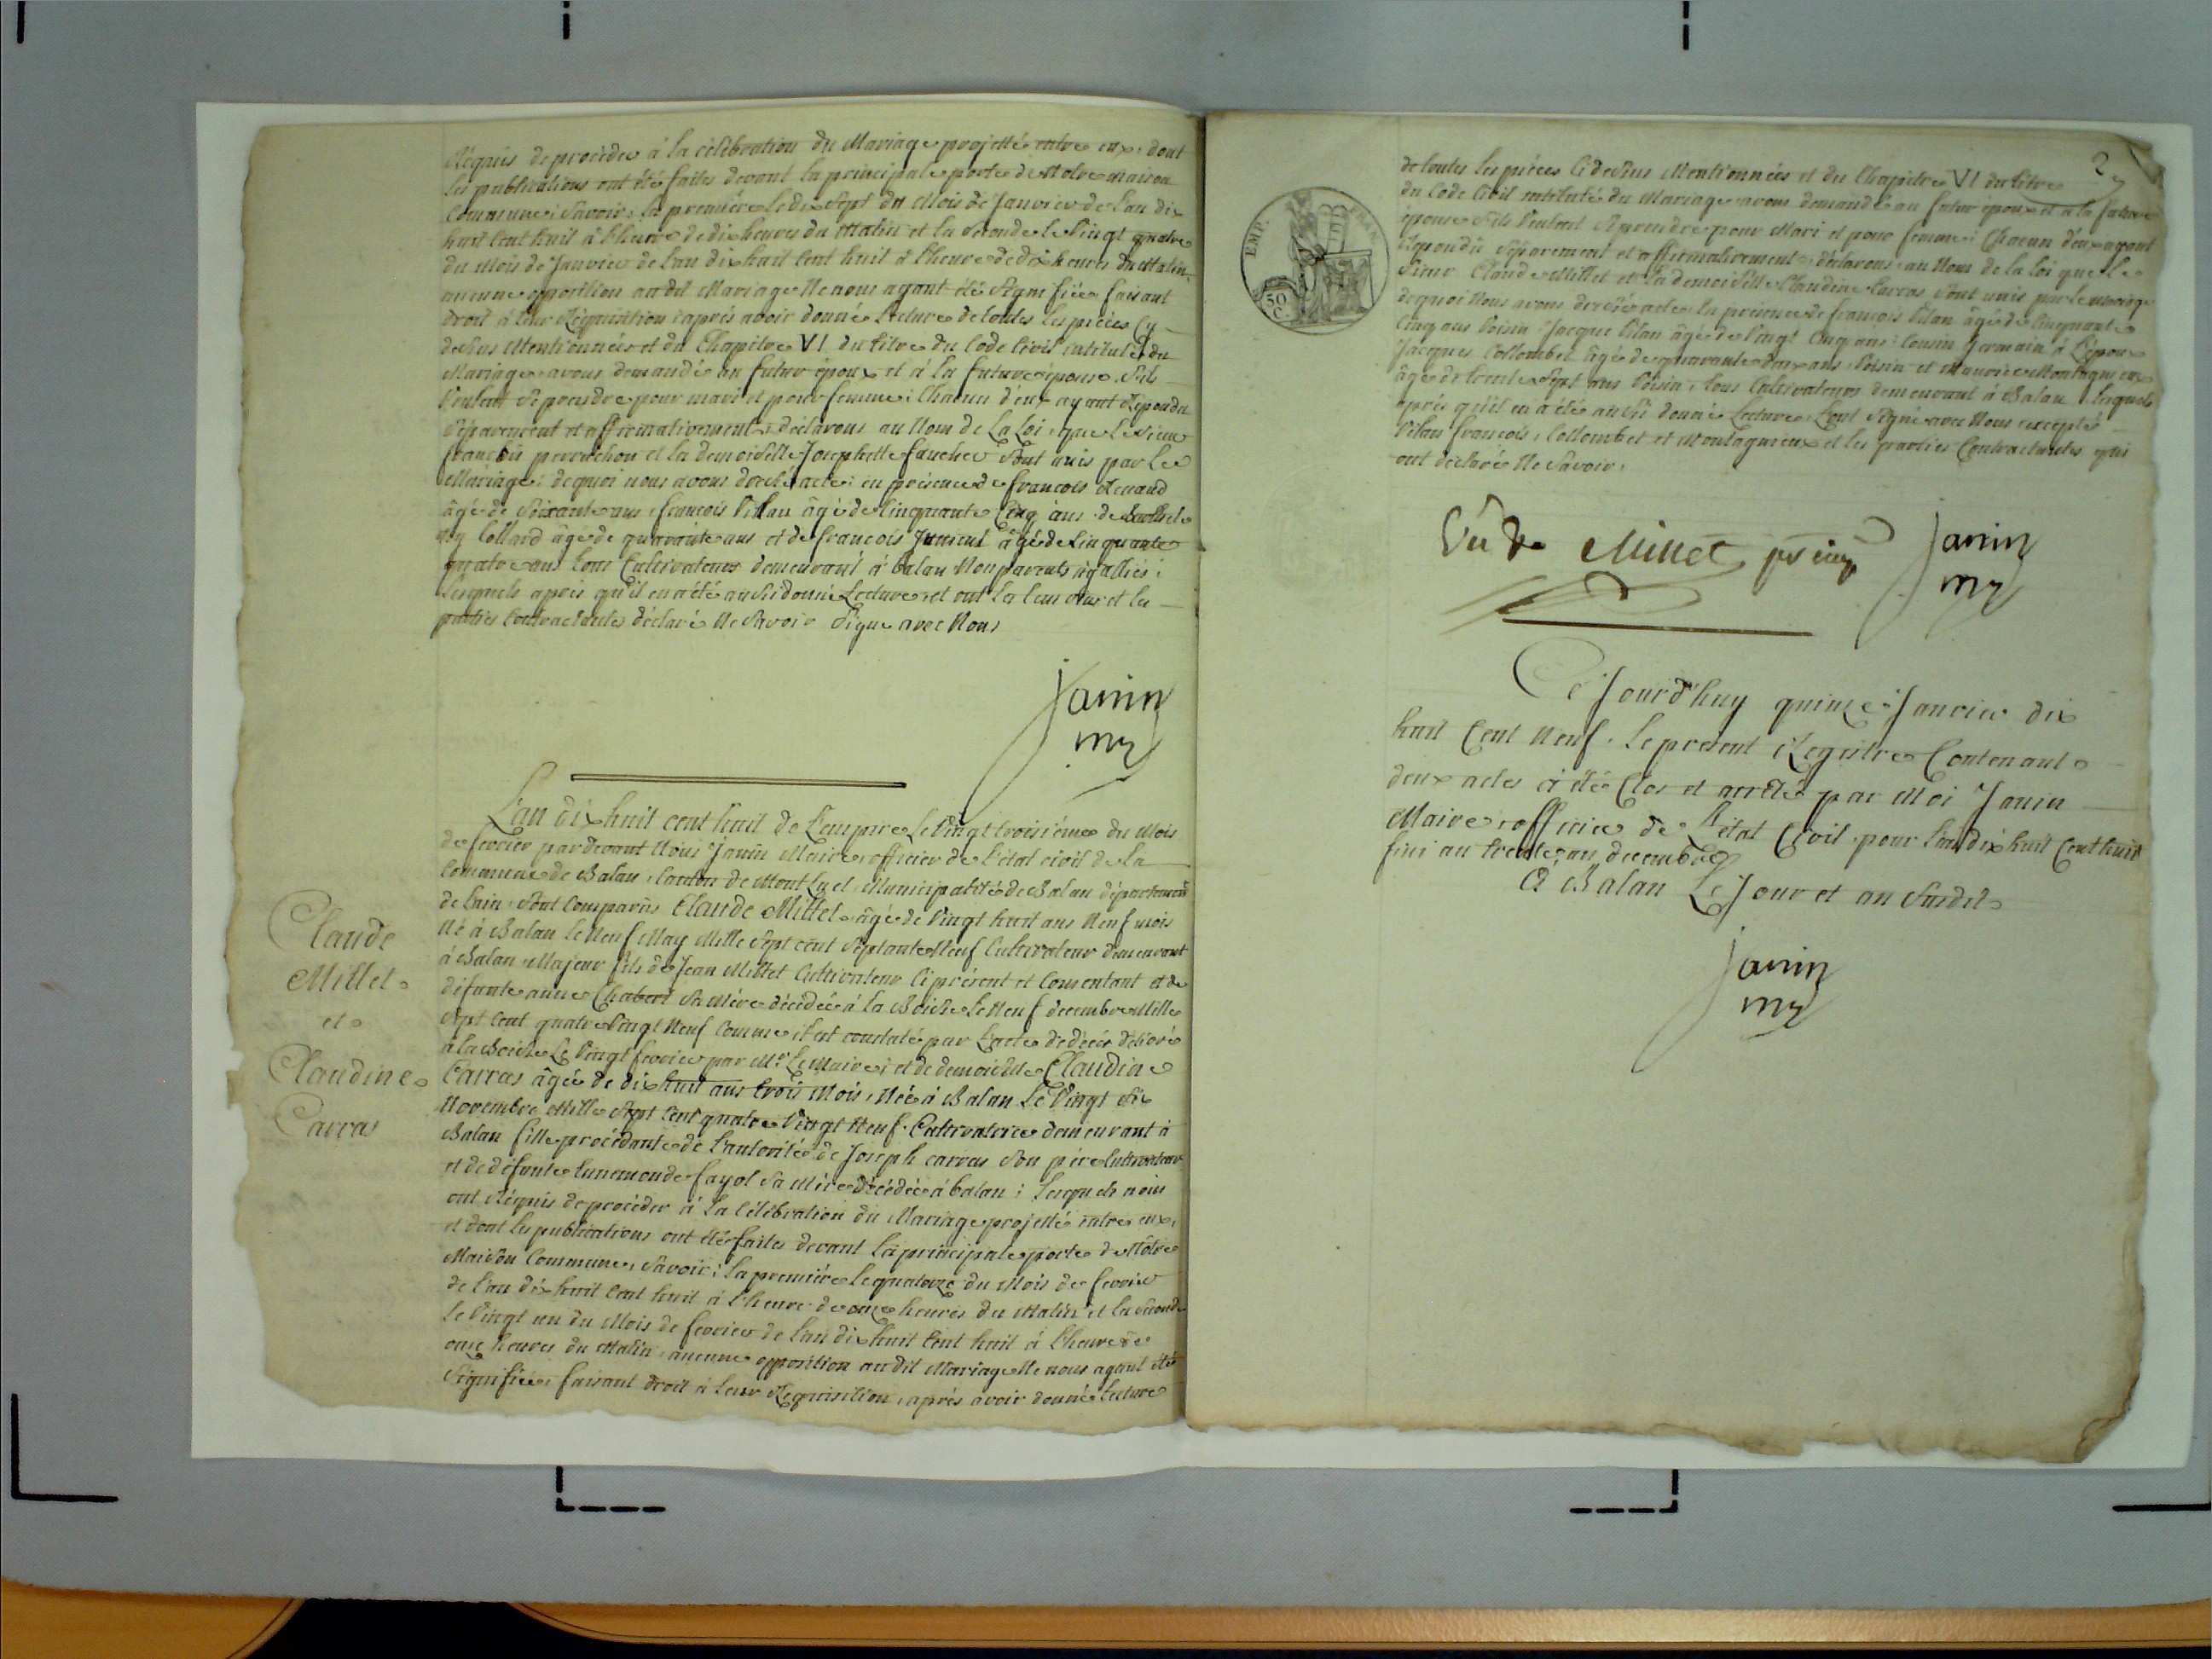 Réquis de procèder à la célébration du Mariage projetté entre eux, dont
les publications ont été faites devant la principale porte de Notre maison
Commune; Savoir, la première le dix Sept du Mois de Janvier de l'an dix
huit Cent huit à l'heure de dix heures du Matin et la Seconde le Vingt quatre
du Mois de Janvier de l'an dix huit Cent huit à l'heure de dix heures du Matin
aucune opposition audit Mariage Ne nous ayant été Signifiée faisant
droit à leur Réquisition, après avoir donné Lecture de toutes les pièces Cy
dessus Mentionnées et du Chapitre VI du titre du Code Civil intitulé du
Mariage, avons demandé au futur époux et à la future épouse S'ils
Veulent Se prendre pour mari et pour femme; Chacun d'eux ayant Répondu
Séparement et affirmativement, déclarons au Nom de La Loi, que le Sieur
francois perruchon et la demoiselle Josephette faucher Sont unis par Le
Mariage; de quoi nous avons dressé acte; en présence de francois Renaud
âgé de Soixante ans, francois Pilan âgé de Cinquante Cinq ans, de
Collard âgé de quarante ans et de francois âgé de Cinquante
quatre ans tous Cultivateurs demeurant à Balan Non parents ny alliés;
Lesquels après qu'il en a été aussi donné Lecture, et ont
parties Contractantes déclaré Ne Savoir Signer avec Nous
Janin
my
L'an dix huit cent huit de L'empire Le Vingt troisième du Mois
de fevrier par devant Nous Janin Maire, officier de l'état civil de la
Commune de Balan, Canton de Mont Luel, Municipalité de Balan département
de l'ain, Sont Comparus Claude Millet, âgé de Vingt huit ans Neuf mois
Né à Balan le Neuf May Mille Sept cent Septante Neuf Cultivateur demeurant
à Balan, Majeur fils de Jean Millet Cultivateur Ci présent et Consentant et de
défunte anne Chabert Sa Mère décédée à la Boisse Le Neuf decembre Mille
Sept Cent quatre Vingt Neuf Comme il est constaté par L'acte de décés délivré
à la Boisse Le Vingt fevrier par Mr. Le Maire; et de demoiselle Claudine
Carras âgée de dix huit ans trois Mois, Née à Balan Le Vingt Six
Novembre Mille Sept Cent quatre Vingt Neuf. Cultivatrice demeurant à
Balan fille procédante de L'autorité de Joseph carras Son père Cultivateur
et de défunte Lunemonde fayol Sa Mère décédée à balan; Lesquels nous
ont Réquis de procèder à la Célébration du Mariage projetté entre eux,
et dont les publications ont été faites devant la principale porte de Notre
Maison Commune, Savoir; la première le quatorze du Mois de fevrier
de l'an dix huit Cent huit à l'heure de onze heures du Matin et la Seconde
le Vingt un du Mois de fevrier de l'an dix huit Cent huit à l'heure de
onze heures du Matin, aucune opposition audit Mariage Ne nous ayant été
Signifiée, faisant droit à leur Réquisition, après avoir donné lecture
Claude
Millet
et
Claudine
Carras
2
EMP. FRAN.
50
C.
de toutes les pièces Ci dessus Mentionnées et du Chapitre VI du titre
du Code Civil intitulé du Mariage, avons demandé au futur époux et à la future
épouse S'ils Veulent Se prendre pour Mari et pour femme; Chacun d'eux ayant
répondu Séparement et affirmativement, déclarons, au Nom de la loi que le
Sieur Claude Millet et la demoiselle Claudine Carras Sont unis par le mariage
de quoi Nous avons dressé acte, en presence de francois Pilan âgé de Cinquante
Cinq ans Voisin, Jacque Pilan âgé de Vingt Cinq ans, Cousin Germain à L'époux
Jacques Collombet âgé de quarante deux ans, Voisin et Maurice Montagnieux
âgé de trente Sept ans Voisin, tous Cultivateurs demeurant à Balan, Lesquels
après qu'il en a été aussi donné Lecture, L'ont Signé avec Nous excepté
Pilan francois, Collombet et Montagnieux et les parties Contractantes qui
ont déclaré Ne Savoir.
Millet
Janin
my
Ce Jourd'huy quinze Janvier dix
huit Cent Neuf. Le présent Régistre Contenant
deux actes à été Clos et arrêté par Moi Janin
Maire, officier de l'état Civil, pour L'an dix huit Cent huit
fini au trente un decembre
A Balan Le Jour et an Susdit
Janin
my